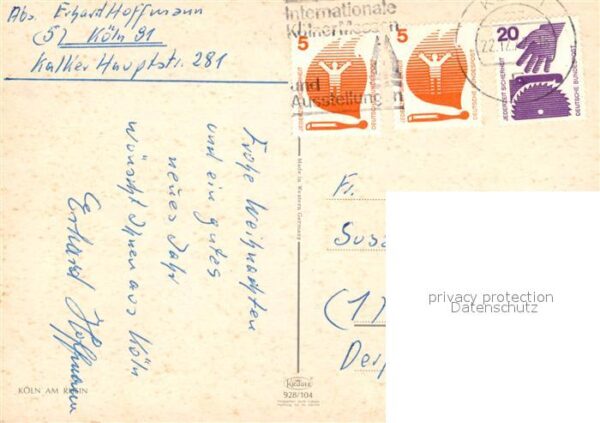 Abs. Erhard Hoffmann
(5) Köln 91
Kalker Hauptstr. 281
Internationale
Kölner Messen
und
Ausstellungen
5
JEDERZEIT SICHERHEIT
DEUTSCHE BUNDESPOST
5
JEDERZEIT SICHERHEIT
DEUTSCHE BUNDESPOST
20
JEDERZEIT SICHERHEIT
DEUTSCHE BUNDESPOST
Frohe Weihnachten
und ein gutes
neues Jahr
wünscht Ihnen aus Köln
Erhard Hoffmann
Made in Western Germany
Fr.
(1)
privacy protection
Datenschutz
KÖLN AM RHEIN
KRÜGER
928/104